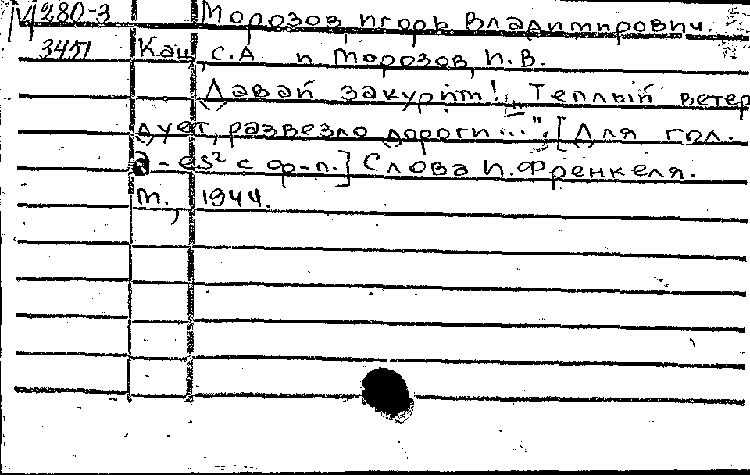 М 280-3 Морозов, Игорь Владимирович.
3451 Кац, С.А. и Морозов, И.В.
Давай закурим! „Теплый ветер
дует, развезло дороги..." [Для гол.
a - es² с ф-п.] Слова И. Френкеля.
М., 1944.